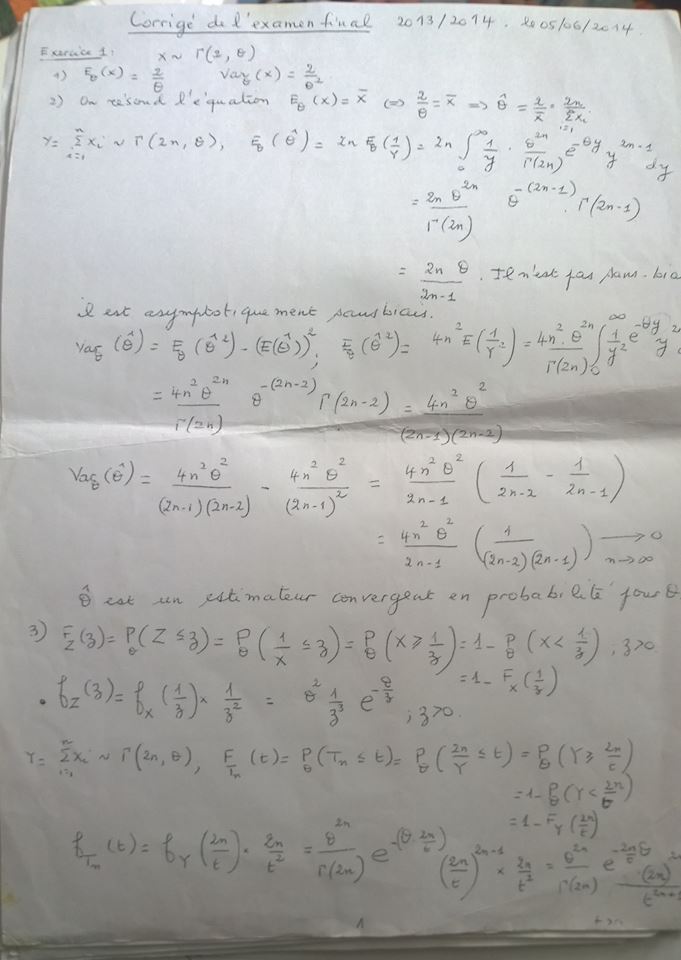 Corrigé de l'examen final 2013/2014. le 05/06/2014.
Exercice 1: X ~ Γ(2, θ)
1) E_θ(x) = 2/θ Var_θ(x) = 2/θ²
2) On résoud l'équation E_θ(x) = x̄ ⟺ 2/θ = x̄ ⟹ θ̂ = 2/x̄ = 2n/Σ_{i=1}^{n} xi
Y = Σ_{i=1}^{n} xi ~ Γ(2n, θ), E_θ(θ̂) = 2n E_θ(1/Y) = 2n ∫_0^∞ 1/y · θ^{2n}/Γ(2n) e^{-θy} y^{2n-1} dy
= 2n θ^{2n}/Γ(2n) θ^{-(2n-1)} · Γ(2n-1)
= 2n θ/(2n-1) . Il n'est pas sans-bia
il est asymptotiquement sans biais.
Var_θ(θ̂) = E_θ(θ̂²) - (E(θ̂))² ; E_θ(θ̂²) = 4n² E(1/Y²) = 4n² θ^{2n}/Γ(2n) ∫_0^∞ 1/y² e^{-θy} y
= 4n² θ^{2n}/Γ(2n) θ^{-(2n-2)} Γ(2n-2) = 4n² θ²/((2n-1)(2n-2))
Var_θ(θ̂) = 4n² θ²/((2n-1)(2n-2)) - 4n² θ²/(2n-1)² = 4n² θ²/(2n-1) (1/(2n-2) - 1/(2n-1))
= 4n² θ²/(2n-1) (1/((2n-2)(2n-1))) → 0 n→∞
θ̂ est un estimateur convergent en probabilité pour θ
3) F_Z(z) = P_θ(Z ≤ z) = P_θ(1/X ≤ z) = P_θ(X ≥ 1/z) = 1 - P_θ(X < 1/z) ; z>0
= 1 - F_X(1/z)
• f_Z(z) = f_X(1/z) × 1/z² = θ² 1/z³ e^{-θ/z} ; z>0.
Y = Σ_{i=1}^{n} xi ~ Γ(2n, θ), F_{Tn}(t) = P_θ(Tn ≤ t) = P_θ(2n/Y ≤ t) = P_θ(Y ≥ 2n/t)
= 1 - P_θ(Y < 2n/t)
= 1 - F_Y(2n/t)
f_{Tn}(t) = f_Y(2n/t) × 2n/t² = θ^{2n}/Γ(2n) e^{-(θ·2n/t)} (2n/t)^{2n-1} × 2n/t² = θ^{2n}/Γ(2n) e^{-2nθ/t} (2n)^{2n}/t^{2n+1}
1 t>0